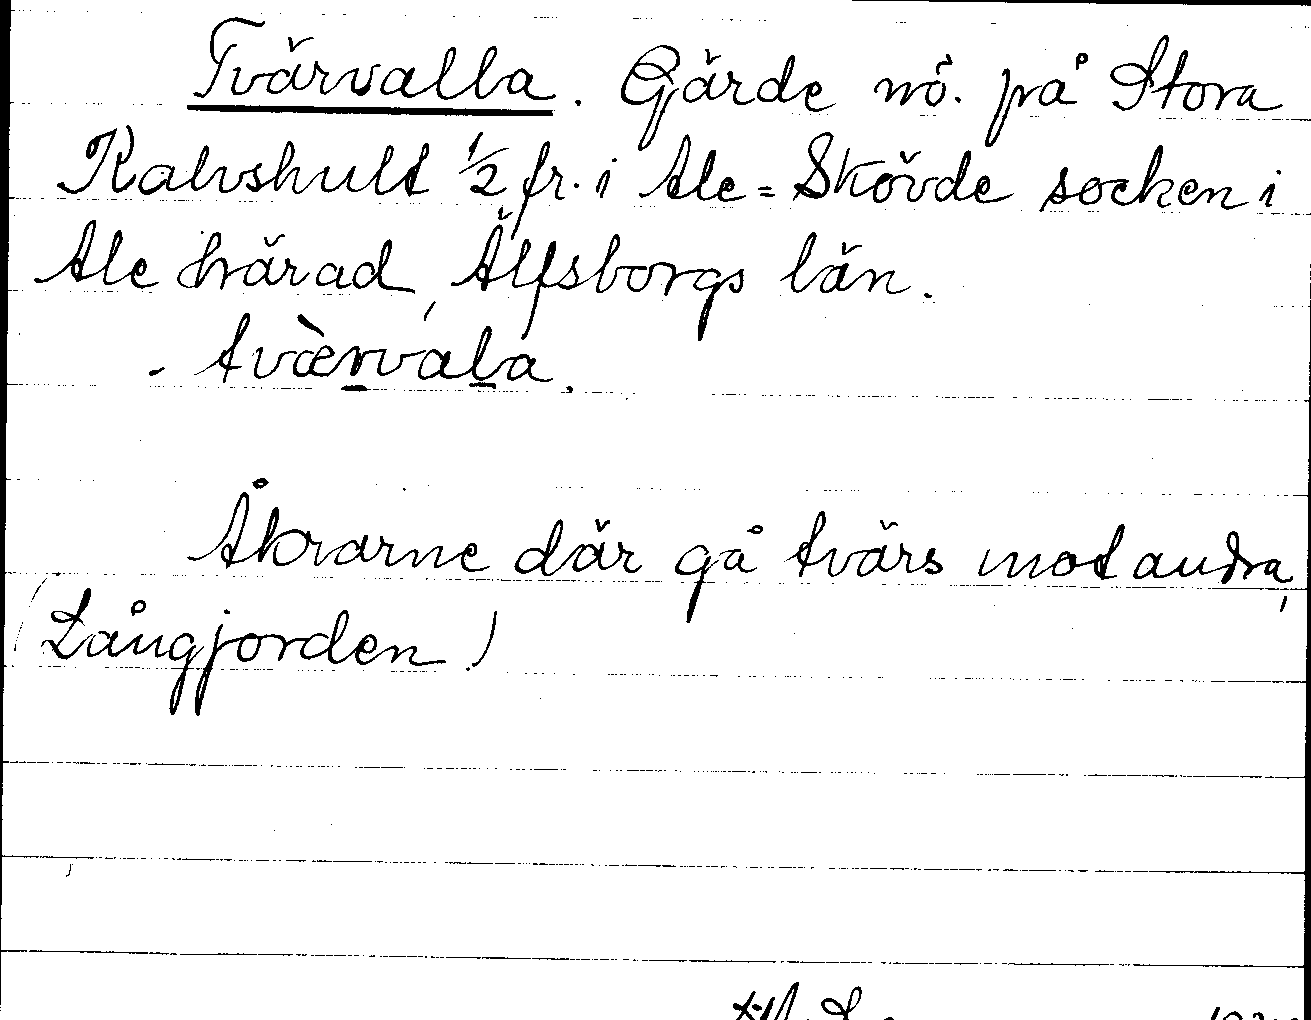 Tvärvalla. Gärde nö. på Stora
Kalvshult ½ fr. i Ale=Skövde socken i
Ale härad, Älfsborgs län.
- tvæ̀rvala.
Åkrarne där gå tvärs mot andra,
(Långjorden)